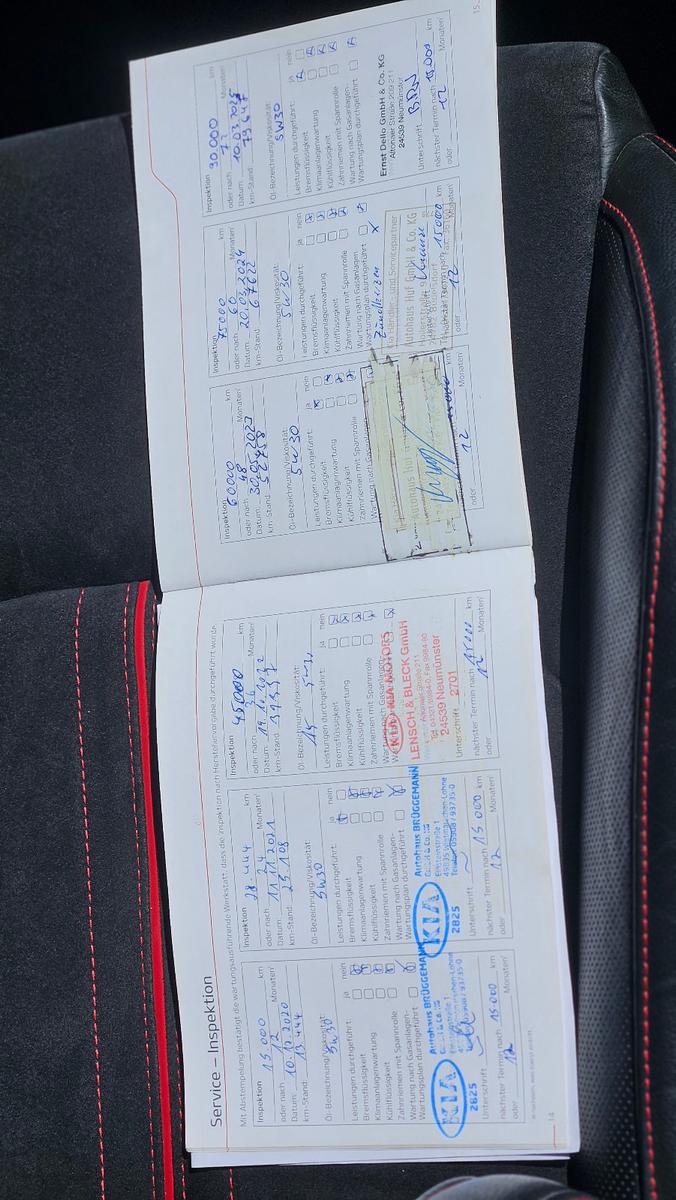 Service – Inspektion
Mit Abstempelung bestätigt die wartungsausführende Werkstatt, dass die Inspektion nach Herstellervorgabe durchgeführt wurde.
Inspektion 15.000 km
oder nach 12 Monaten
Datum: 10.12.2020
km-Stand: 13 444
Öl-Bezeichnung/Viskosität:
5W30
Leistungen durchgeführt: ja nein
Bremsflüssigkeit
Klimaanlagenwartung
Kühlflüssigkeit
Zahnriemen mit Spannrolle
Wartung nach Gasanlagen-
Wartungsplan durchgeführt
KIA
2825
Autohaus BRÜGGEMANN
GmbH & Co. KG
Unterschrift
nächster Termin nach 15 000 km
oder 12 Monaten
14
Inspektion 28 444 km
oder nach 24 Monaten
Datum: 11.11.2021
km-Stand: 25 108
Öl-Bezeichnung/Viskosität:
5W30
Leistungen durchgeführt: ja nein
Bremsflüssigkeit
Klimaanlagenwartung
Kühlflüssigkeit
Zahnriemen mit Spannrolle
Wartung nach Gasanlagen-
Wartungsplan durchgeführt
KIA
2825
Autohaus BRÜGGEMANN
GmbH & Co. KG
Unterschrift
nächster Termin nach 15 000 km
oder 12 Monaten
Inspektion 45.000 km
oder nach Monaten
Datum: 19.10.2022
km-Stand:
Öl-Bezeichnung/Viskosität:
Leistungen durchgeführt: ja nein
Bremsflüssigkeit
Klimaanlagenwartung
Kühlflüssigkeit
Zahnriemen mit Spannrolle
Wartung nach Gasanlagen-
KIA MOTORS
LENSCH & BLECK GmbH
24539 Neumünster
Unterschrift 2701
nächster Termin nach 15000 km
oder 12 Monaten
Inspektion 60.000 km
oder nach 48 Monaten
Datum: 30.05.2023
km-Stand:
Öl-Bezeichnung/Viskosität:
5W30
Leistungen durchgeführt: ja nein
Bremsflüssigkeit
Klimaanlagenwartung
Kühlflüssigkeit
Zahnriemen mit Spannrolle
Wartung nach Gasanlagen-
Autohaus Huf
km
oder 12 Monaten
Inspektion 75000 km
oder nach 60 Monaten
Datum: 20.02.2024
km-Stand: 67622
Öl-Bezeichnung/Viskosität:
5W30
Leistungen durchgeführt: ja nein
Bremsflüssigkeit
Klimaanlagenwartung
Kühlflüssigkeit
Zahnriemen mit Spannrolle
Wartung nach Gasanlagen-
Wartungsplan durchgeführt
Zündkerzen x
Autohaus Huf GmbH & Co. KG
15000 km
oder 12 Monaten
Inspektion 90.000 km
oder nach 72 Monaten
Datum: 10.03.2025
km-Stand: 79647
Öl-Bezeichnung/Viskosität:
5W30
Leistungen durchgeführt: ja nein
Bremsflüssigkeit
Klimaanlagenwartung
Kühlflüssigkeit
Zahnriemen mit Spannrolle
Wartung nach Gasanlagen-
Wartungsplan durchgeführt
Ernst Dello GmbH & Co. KG
Altonaer Straße 209-211
24539 Neumünster
Unterschrift
nächster Termin nach 15.000 km
oder 12 Monaten
15